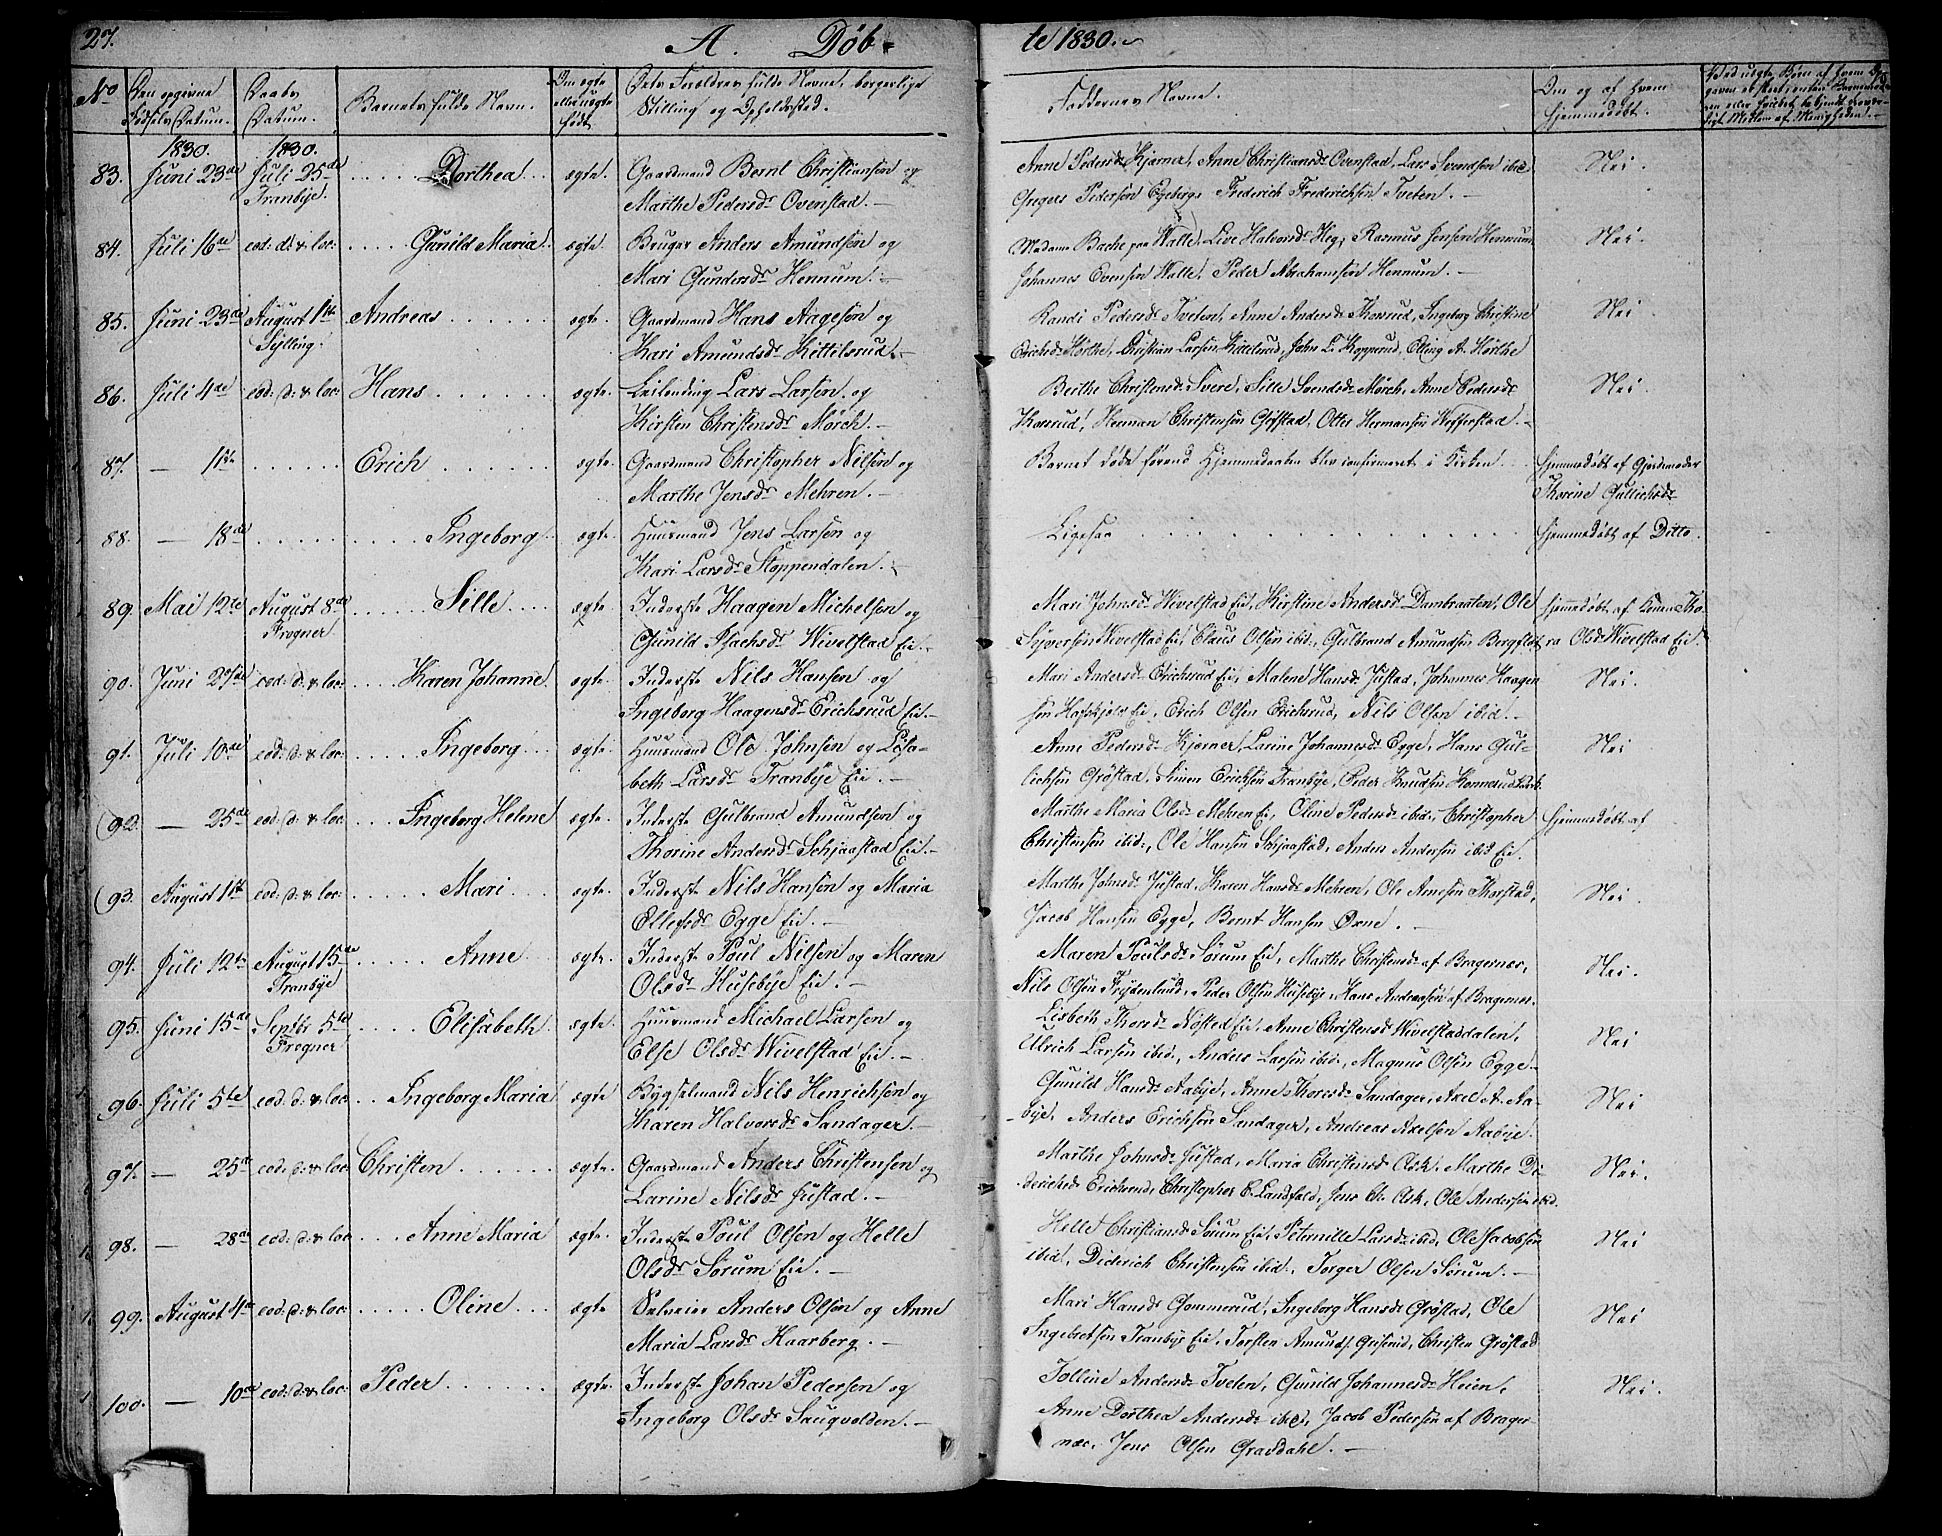 27. A. Døb-
te 1830.
No
Den opgivne Fødsels Datum.
Daabs Datum.
Barnets fulde Navn.
Om ægte eller uægte født
Dets Forældres fulde Navne, borgerlige Stilling og Opholdssted.
Faddernes Navne.
Om og af hvem hjemmedøbt.
1830. 1830.
83. Juni 23de Juli 25de Dorthea ægte. Gaardmand Bernt Christiansen og
Tranbye. Marthe Pedersdr Ovenstad.
Anne Pedersdr Kjerner, Anne Christiansdr Ovenstad, Lars Svendsen ibid,
Gregers Pedersen Egeberg, Frederich Frederichsen Tveten.
Nei.
84. Juli 16de eod: d: & loc: Gunild Maria ægte. Bruger Anders Amundsen og
Mari Gundersdr Hennum.
Madame Bache paa Walle, Live Halvorsdr Heg, Rasmus Jensen Hennum
Johannes Evensen Walle, Peder Abrahamsen Hennum.
Nei.
85. Juni 23de August 1ste Andreas ægte. Gaardmand Hans Aagesen og
Sylling. Kari Amundsdr Kittilsrud.
Randi Pedersdr Tveten, Anne Andersdr Thorsrud, Ingeborg Christine
Erichsdr Hørthe, Christian Larsen Kittilsrud, John L. Kopperud, Elling A. Hørthe
Nei.
86. Juli 4de eod: d: & loc: Hans ægte. Leilending Lars Larsen og
Kirsten Christensdr Mørch.
Berthe Christensdr Svere, Sille Svendsdr Mørch, Anne Pedersdr
Korsrud, Herman Christensen Gjøfstad, Otter Hermansen Wefferstad.
Nei.
87. — 11te Erich ægte. Gaardmand Christopher Nilsen og
Marthe Jensdr Mehren.
Barnet døde førend Hjemmedaaben blev confirmeret i Kirken.
Hjemmedøbt af Gjordemoder
Thorine Gullichsdr
88. — 18de Ingeborg ægte. Huusmand Jens Larsen og
Kari Larsdr Stoppendalen.
Ligesaa
Hjemmedøbt af Ditto.
89. Mai 12te August 8de Sille ægte Inderste Haagen Michelsen og
Frogner Gunild Isachsdr Wivelstad Eie.
Mari Johnsdr Wivelstad Eie, Kirstine Andersdr Dambraaten, Ole
Syversen Wivelstad Eie, Claus Olsen ibid., Gulbrand Amundsen Bergflot
Hjemmedøbt af Konen Tho-
ra Olsdr Wivelstad Eie
90. Juni 27de eod: d: & loc: Karen Johanne ægte. Inderste Nils Hansen og
Ingeborg Haagensdr Erichsrud Eie.
Mari Andersdr Erichsrud Eie, Malene Hansdr Justad, Johannes Haagen
sen Hafskjold Eie, Erich Olsen Erichsrud, Nils Olsen ibid.
Nei.
91. Juli 10de eod: d: & loc: Ingeborg ægte. Huusmand Ole Johnsen og Lisa-
beth Larsdr Tranbye Eie.
Anne Pedersdr Kjerner, Larine Johannesdr Egge, Hans Gul-
lichsen Grøstad, Simen Erichsen Tranbye, Peder Knudsen
Nei
92. — 25de eod: d: & loc: Ingeborg Helene ægte. Inderste Gulbrand Amundsen og
Thorine Andersdr Schjaastad Eie.
Marthe Maria Olsdr Mehren Eie, Oline Pedersdr ibid., Christopher
Christensen ibid., Ole Hansen Schjaastad, Anders Andersen ibid Eie.
Hjemmedøbt af
93. August 1ste eod: d: & loc: Mari ægte. Inderste Nils Hansen og Maria
Ellefsdr Egge Eie.
Marthe Johnsdr Justad, Karen Hansdr Mehren, Ole Arnesen Thorstad,
Jacob Hansen Egge, Bernt Hansen Øxne.
Nei.
94. Juli 12te August 15de Anne ægte. Inderste Poul Nilsen og Maren
Tranbye Olsdr Husebye Eie.
Maren Poulsdr Sørum Eie, Marthe Christensdr af Bragernæs,
Nils Olsen Frydenlund, Peder Olsen Husebye, Hans Andreassen af Bragernæs.
Nei.
95. Juni 15de Septbr 5te Elisabeth ægte. Huusmand Michael Larsen og
Frogner Else Olsdr Wivelstad Eie.
Lisbeth Thorsdr Nøsted Eie, Anne Christensdr Wivelstaddalen,
Ulrich Larsen ibid., Anders Larsen ibid., Magnus Olsen Egge.
Nei
96. Juli 5te eod: d: & loc: Ingeborg Maria ægte Bygselmand Nils Henrichsen og
Karen Halvorsdr Sandager.
Gunild Hansdr Aabye, Anne Thoresdr Sandager, Axel A. Aa-
bye, Anders Erichsen Sandager, Andreas Axelsen Aabye.
Nei
97. — 25de eod: d: & loc: Christen ægte. Gaardmand Anders Christensen og
Larine Nilsdr Justad.
Marthe Johnsdr Justad, Maria Christensdr Ask, Marthe Di-
derichsdr Erichsrud, Christopher C. Landfald, Jens Ch. Ask, Ole Andersen ibid.
Nei.
98. — 28de eod: d: & loc: Anne Maria ægte. Inderste Poul Olsen og Helle
Olsdr Sørum Eie.
Helle Christiansdr Sørum Eie, Peternille Larsdr ibid, Ole Jacobsen
ibid, Diderich Christensen ibid., Torger Olsen Sørum.
Nei
99. August 4de eod: d: & loc: Oline ægte Selveier Anders Olsen og Anne
Maria Larsdr Haarberg.
Mari Hansdr Gommerud, Ingeborg Hansdr Grøstad, Ole
Ingebretsen Tranbye Eie, Torsten Amunds. Griserud, Christen Grøstad
Nei
100. — 10de eod: d: & loc: Peder ægte. Inderste Johan Pedersen og
Ingeborg Olsdr Saugvolden.
Jolline Andersdr Tveten, Gunild Johannesdr Heien,
Anne Dorthea Andersdr ibid, Jacob Pedersen af Brager-
næs, Jens Olsen Gravdahl.
Nei.